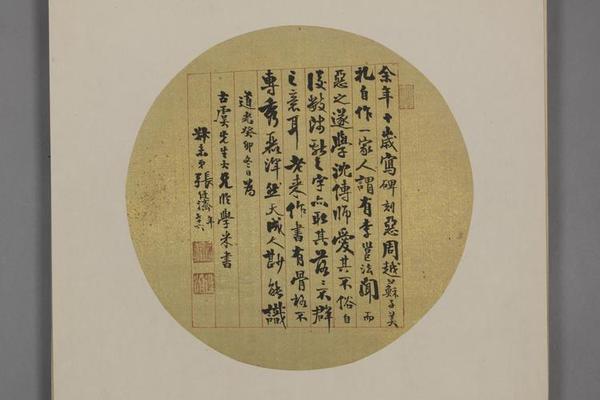 余年十歲寫碑刻惡周越蘇子美
札自作一家人謂有李邕法聞而
惡之遂學沈傳師愛其不俗自
後數獻之字亦取其落落不群
之意耳老來作書有骨格不
專秀麗渾然天成人尠能識
道光癸卯冬日為
古虞先生大兄作學米書
叔未弟張廷濟年七十六